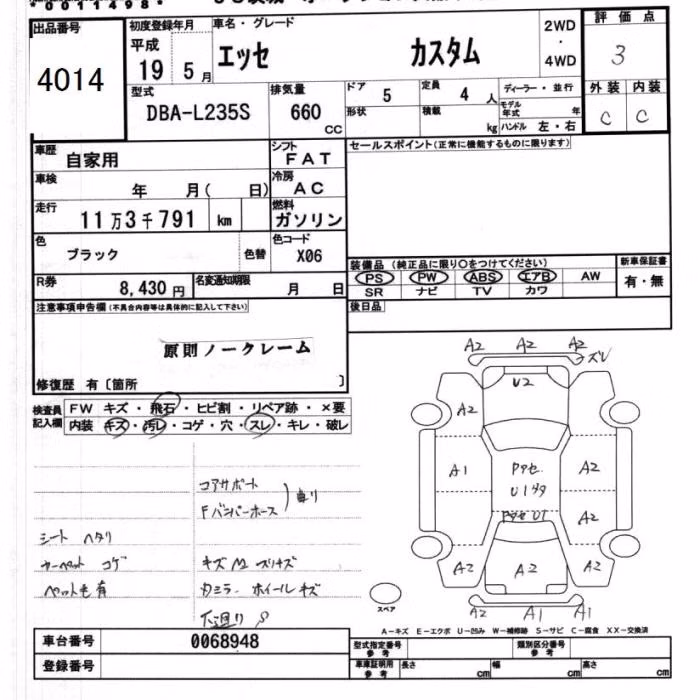 出品番号 初度登録年月 車名・グレード 2WD 評価点
4014 平成 エッセ カスタム ・ 3
19 5月 4WD
型式 排気量 ドア 5 定員 4人 ディーラー・並行 外装 内装
DBA-L235S 660 形状 積載 モデル年式 年 C C
CC kg ハンドル 左・右
車歴 自家用 シフト FAT セールスポイント(正常に機能するものに限ります)
車検 年 月( 日) 冷房 AC
走行 11万3千791 km 燃料 ガソリン
色 ブラック 色替 色コード X06
装備品 (純正品に限り○をつけてください) 新車保証書
R券 8,430円 名変通知期限 月 日 PS PW ABS エアB AW 有・無
SR ナビ TV カワ
注意事項申告欄(不具合内容等は具体的に記入して下さい) 後日品
原則ノークレーム
修復歴 有〔箇所 〕
検査員 FW キズ・飛石・ヒビ割・リペア跡・×要
記入欄 内装 キズ・汚レ・コゲ・穴・スレ・キレ・破レ
A2 A2 A2 ズレ
U2
A2
A1 A2
U1
A2
A2 A2 A2
A2 A1 A1
コアサポート
Fバンパーホース
シート ヘタリ
カーペット コゲ キズ
ペット毛有 ホイールキズ
下廻り S
スペア
A-キズ E-エクボ U-凹み W-補修跡 S-サビ C-腐食 XX-交換済
車台番号 0068948 型式指定番号 参考 類別区分番号 参考
登録番号 車庫証明用 参考 長さ cm 幅 cm 高さ cm